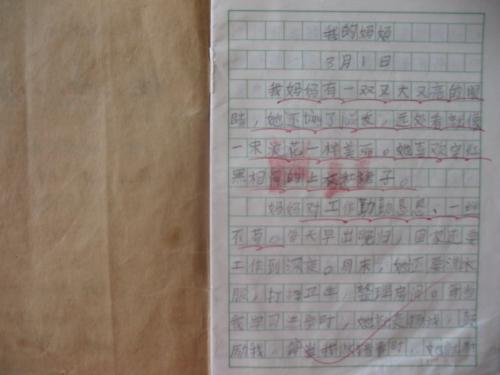 我的妈妈
3月1日
我妈妈有一双又大又亮的眼
睛,她了发,远处看就像
一朵浪花一样美丽。她喜欢穿红
黑相间的上衣和裙子。
妈妈对工作勤勤恳恳、一丝
不苟。每天早出晚归,回家还要
工作到深夜。周末,她还要洗衣
服,打扫卫生,整理房间。
我学习进步时,她
励我,每当我时,她